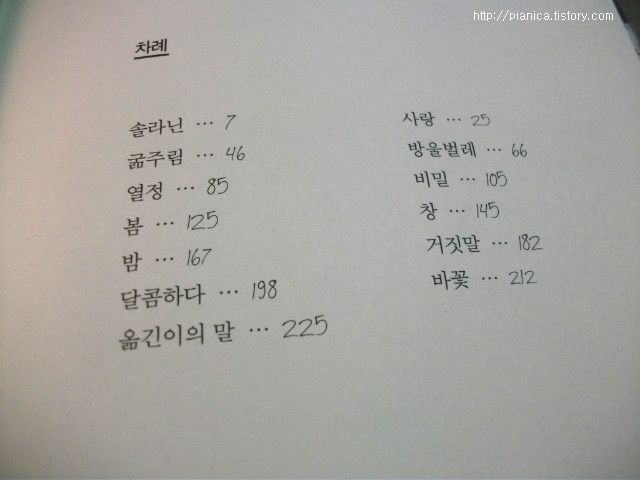 http://pianica.tistory.com/
차례
솔라닌 … 7
굶주림 … 46
열정 … 85
봄 … 125
밤 … 167
달콤하다 … 198
옮긴이의 말 … 225
사랑 … 25
방울벌레 … 66
비밀 … 105
창 … 145
거짓말 … 182
바꽃 … 212